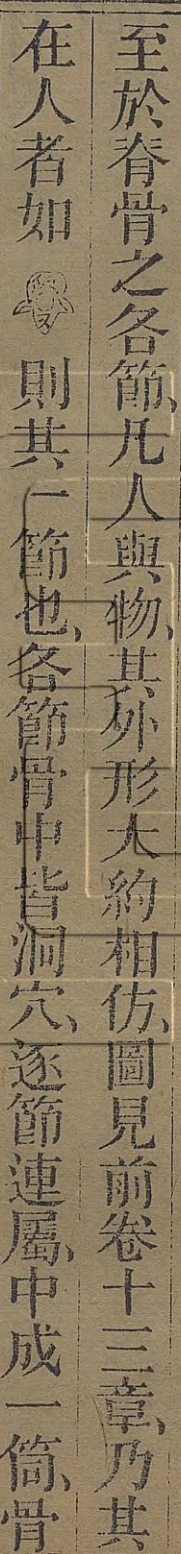 至於脊骨之各節、凡人與物、其外形大約相仿、圖見前卷十三章、乃其
在人者如 則其一節也、各節骨中皆洞穴、逐節連屬、中成一筒、骨